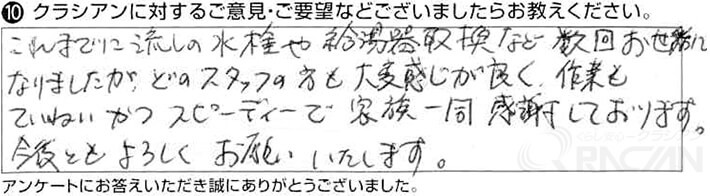 ❿ クラシアンに対するご意見・ご要望などございましたらお教えください。
これまでに流しの水栓や給湯器取換など数回お世話に
なりましたが、どのスタッフの方も大変感じが良く、作業も
ていねいかつスピーディーで家族一同感謝しております。
今後ともよろしくお願いいたします。
アンケートにお答えいただき誠にありがとうございました。